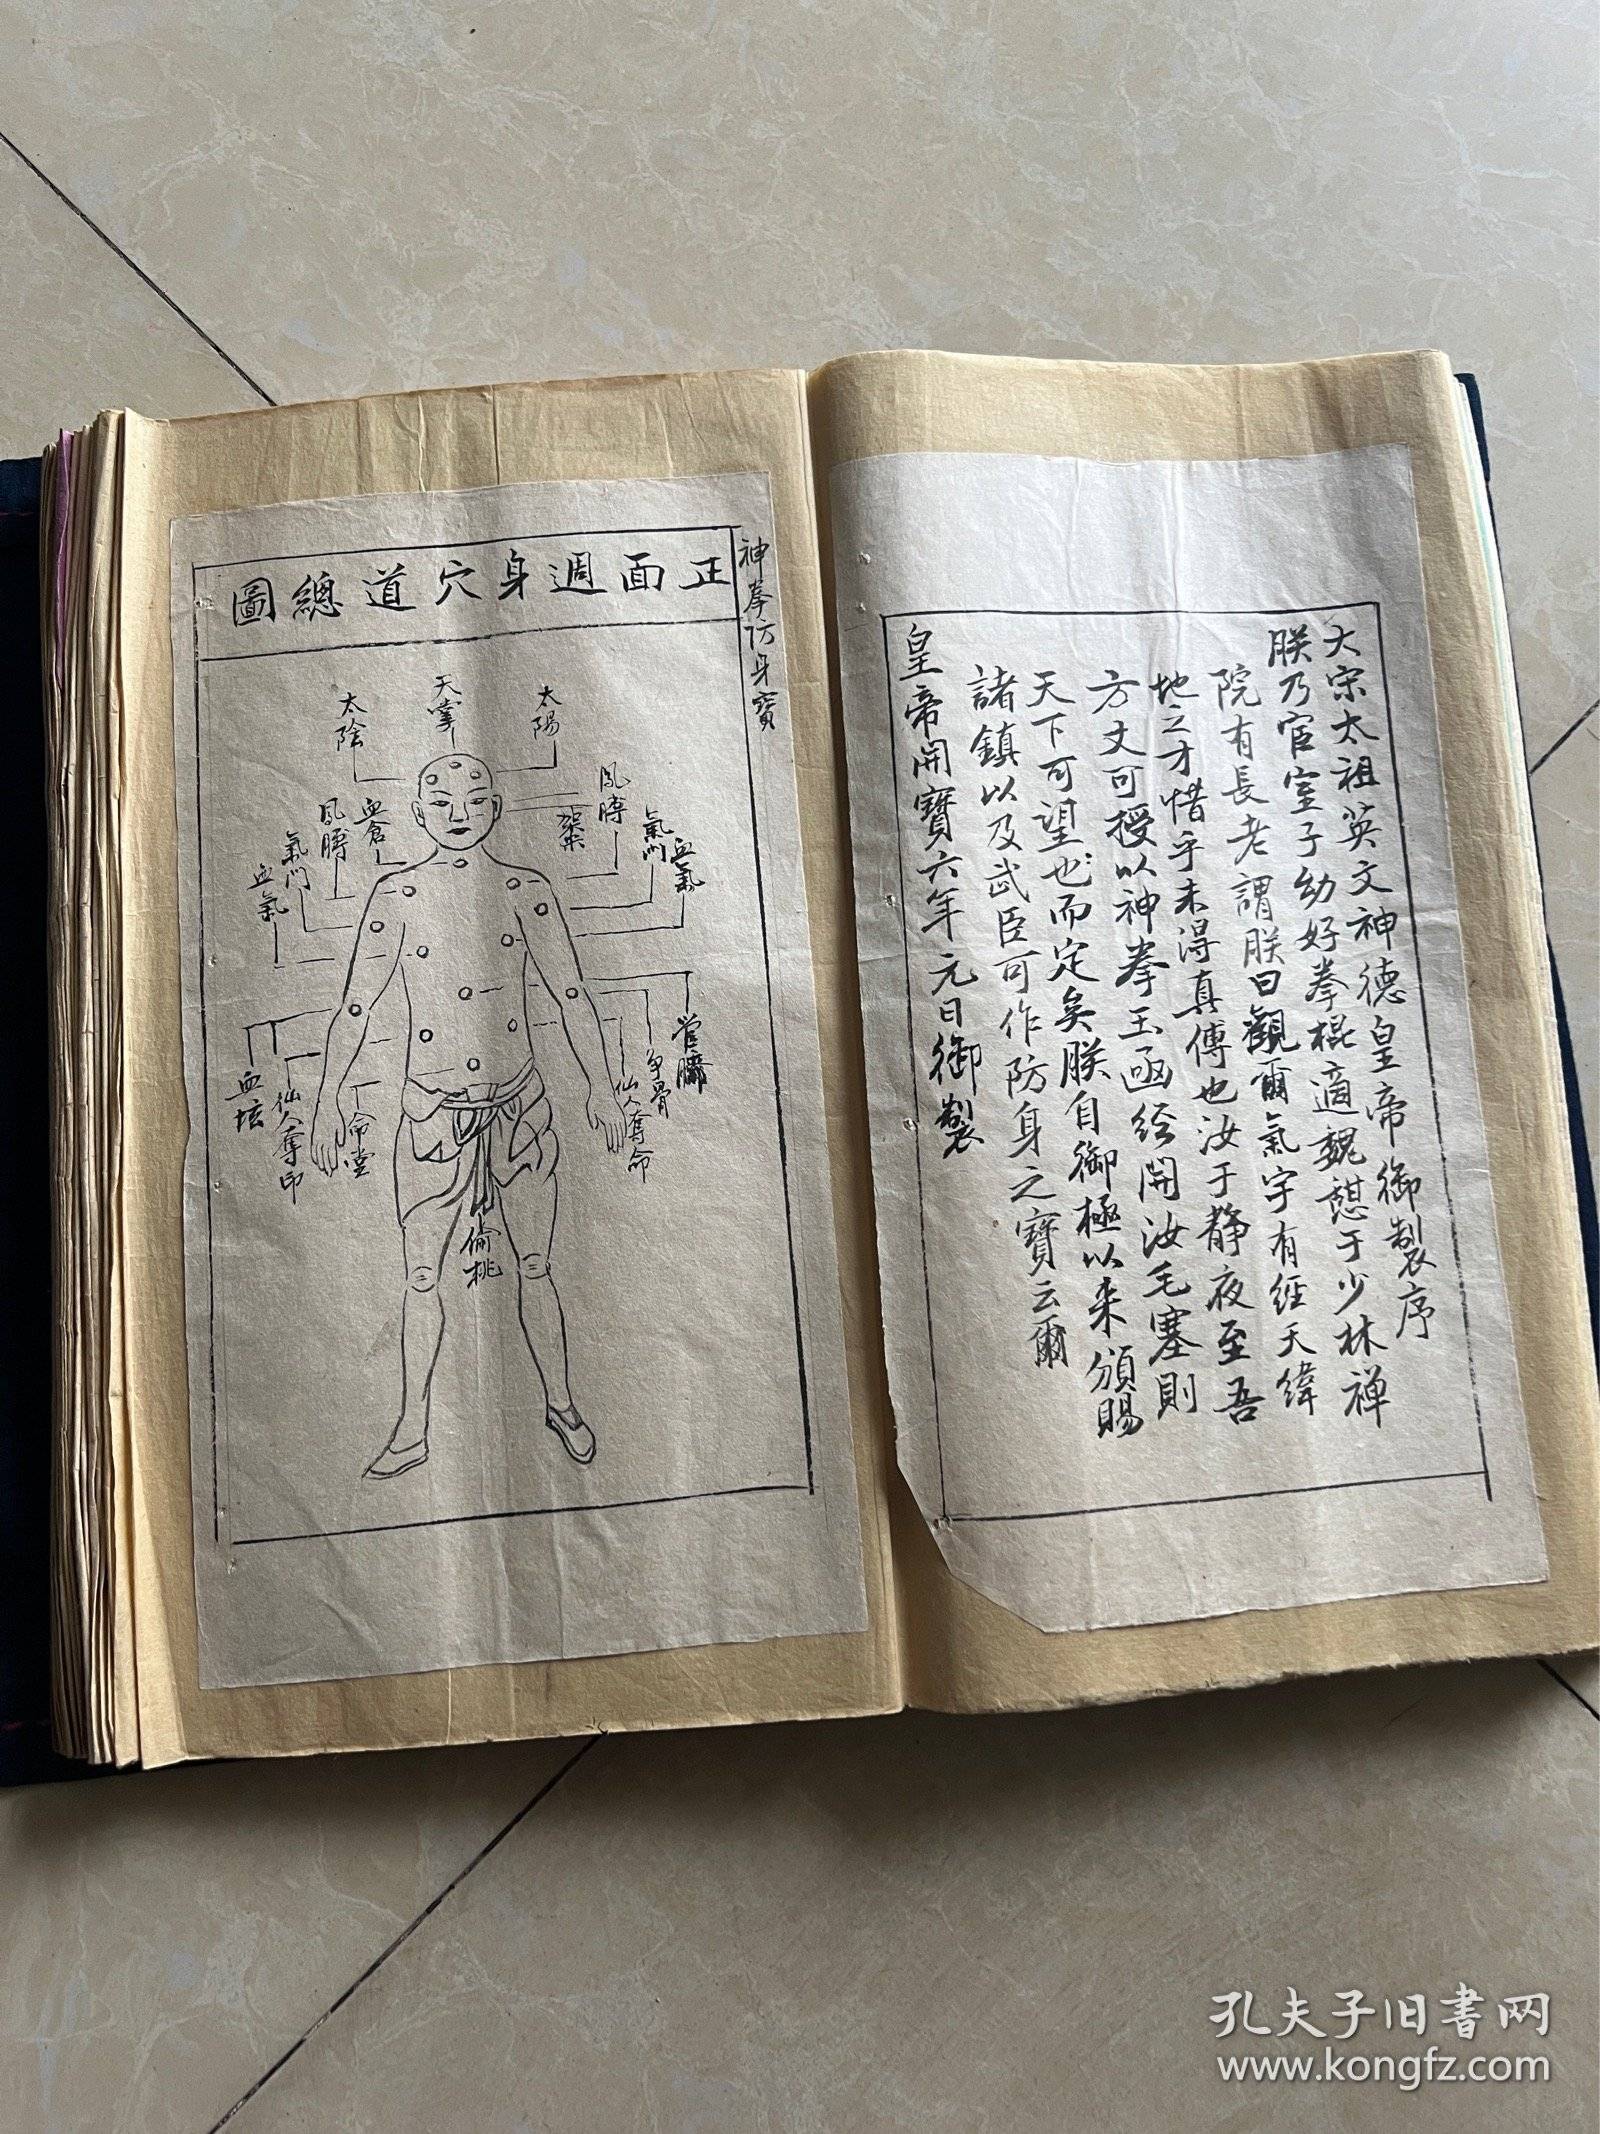 大宋太祖英文神德皇帝御製序
朕乃宦室子幼好拳棍適魏憇于少林禅
院有長老謂朕曰觀爾氣宇有經天緯
地之才惜乎未得真傳也汝于静夜至吾
方丈可授以神拳玉函經開汝毛塞則
天下可望也而定矣朕自御極以来頒賜
諸鎮以及武臣可作防身之寶云爾
皇帝開寶六年元日御製
神拳防身寶
正面週身穴道總圖
太陽
天掌
太陰
鳳膊
架梁
氣門
血氣
血倉
鳳膊
氣門
血氣
管臑
争骨
仙人奪命
命堂
仙人奪印
血坛
偷桃
孔夫子旧書网
www.kongfz.com